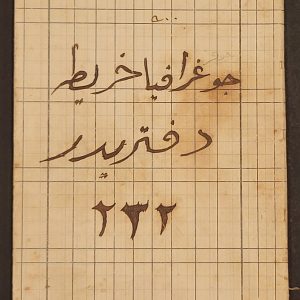 ٥٠٠
جوغرافيا خريطه
دفتريدر
٢٣٢